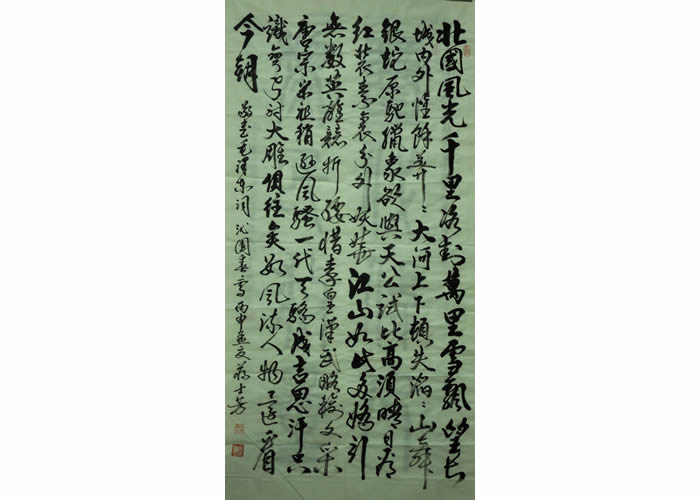 北國風光千里冰封萬里雪飄望長
城內外惟餘莽〻大河上下頓失滔〻山舞
銀蛇原馳臘象欲與天公試比高須晴日看
紅裝素裹分外妖嬈江山如此多嬌引
無數英雄競折腰惜秦皇漢武略輸文采
唐宗宋祖稍遜風騷一代天驕成吉思汗只
識彎弓射大雕俱往矣數風流人物還看
今朝 敬書毛澤東詞沁園春雪丙申孟夏士芳